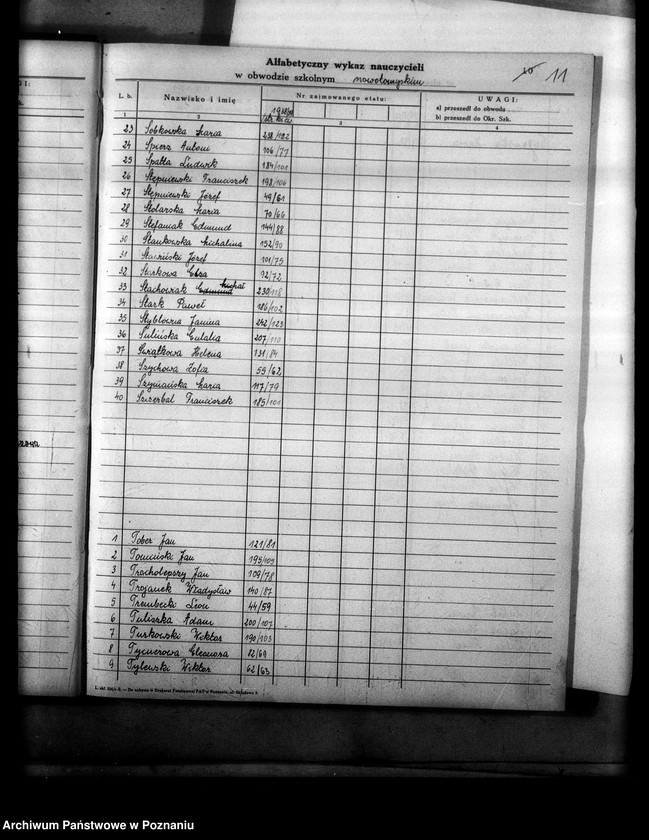 Alfabetyczny wykaz nauczycieli
w obwodzie szkolnym nowotomyskim
10 11
L. b.
Nazwisko i imię
Nr zajmowanego etatu:
UWAGI:
a) przeszedł do obwodu
b) przeszedł do Okr. Szk.
1 2 3 4
23 Sobkowska Maria 238/122
24 Spiesz Antoni 106/77
25 Spałta Ludwik 184/101
26 Stępniewski Franciszek 198/106
27 Stępniewski Józef 49/61
28 Stolarska Maria 70/66
29 Stefaniak Edmund 144/88
30 Stankowska Michalina 152/90
31 Józef 101/75
32 Starkowa 92/72
33 Stachowiak Edmund Michał 230/118
34 Stark Paweł 186/102
35 Janina 242/123
36 Sulińska Eulalia 207/110
37 Świątkowa Helena 131/84
38 Szychowa Zofia 55/62
39 Szymańska Maria 117/79
40 Szczerbal Franciszek 185/101
1 Tober Jan 121/81
2 Tomiński Jan 195/105
3 Trocholepszy Jan 109/78
4 Trojanek Władysław 140/87
5 Trembecki Leon 44/59
6 Tuliszka Adam 200/107
7 Turkowski Wiktor 190/103
8 Eleonora 82/69
9 Tylewski Wiktor 62/63
Archiwum Państwowe w Poznaniu